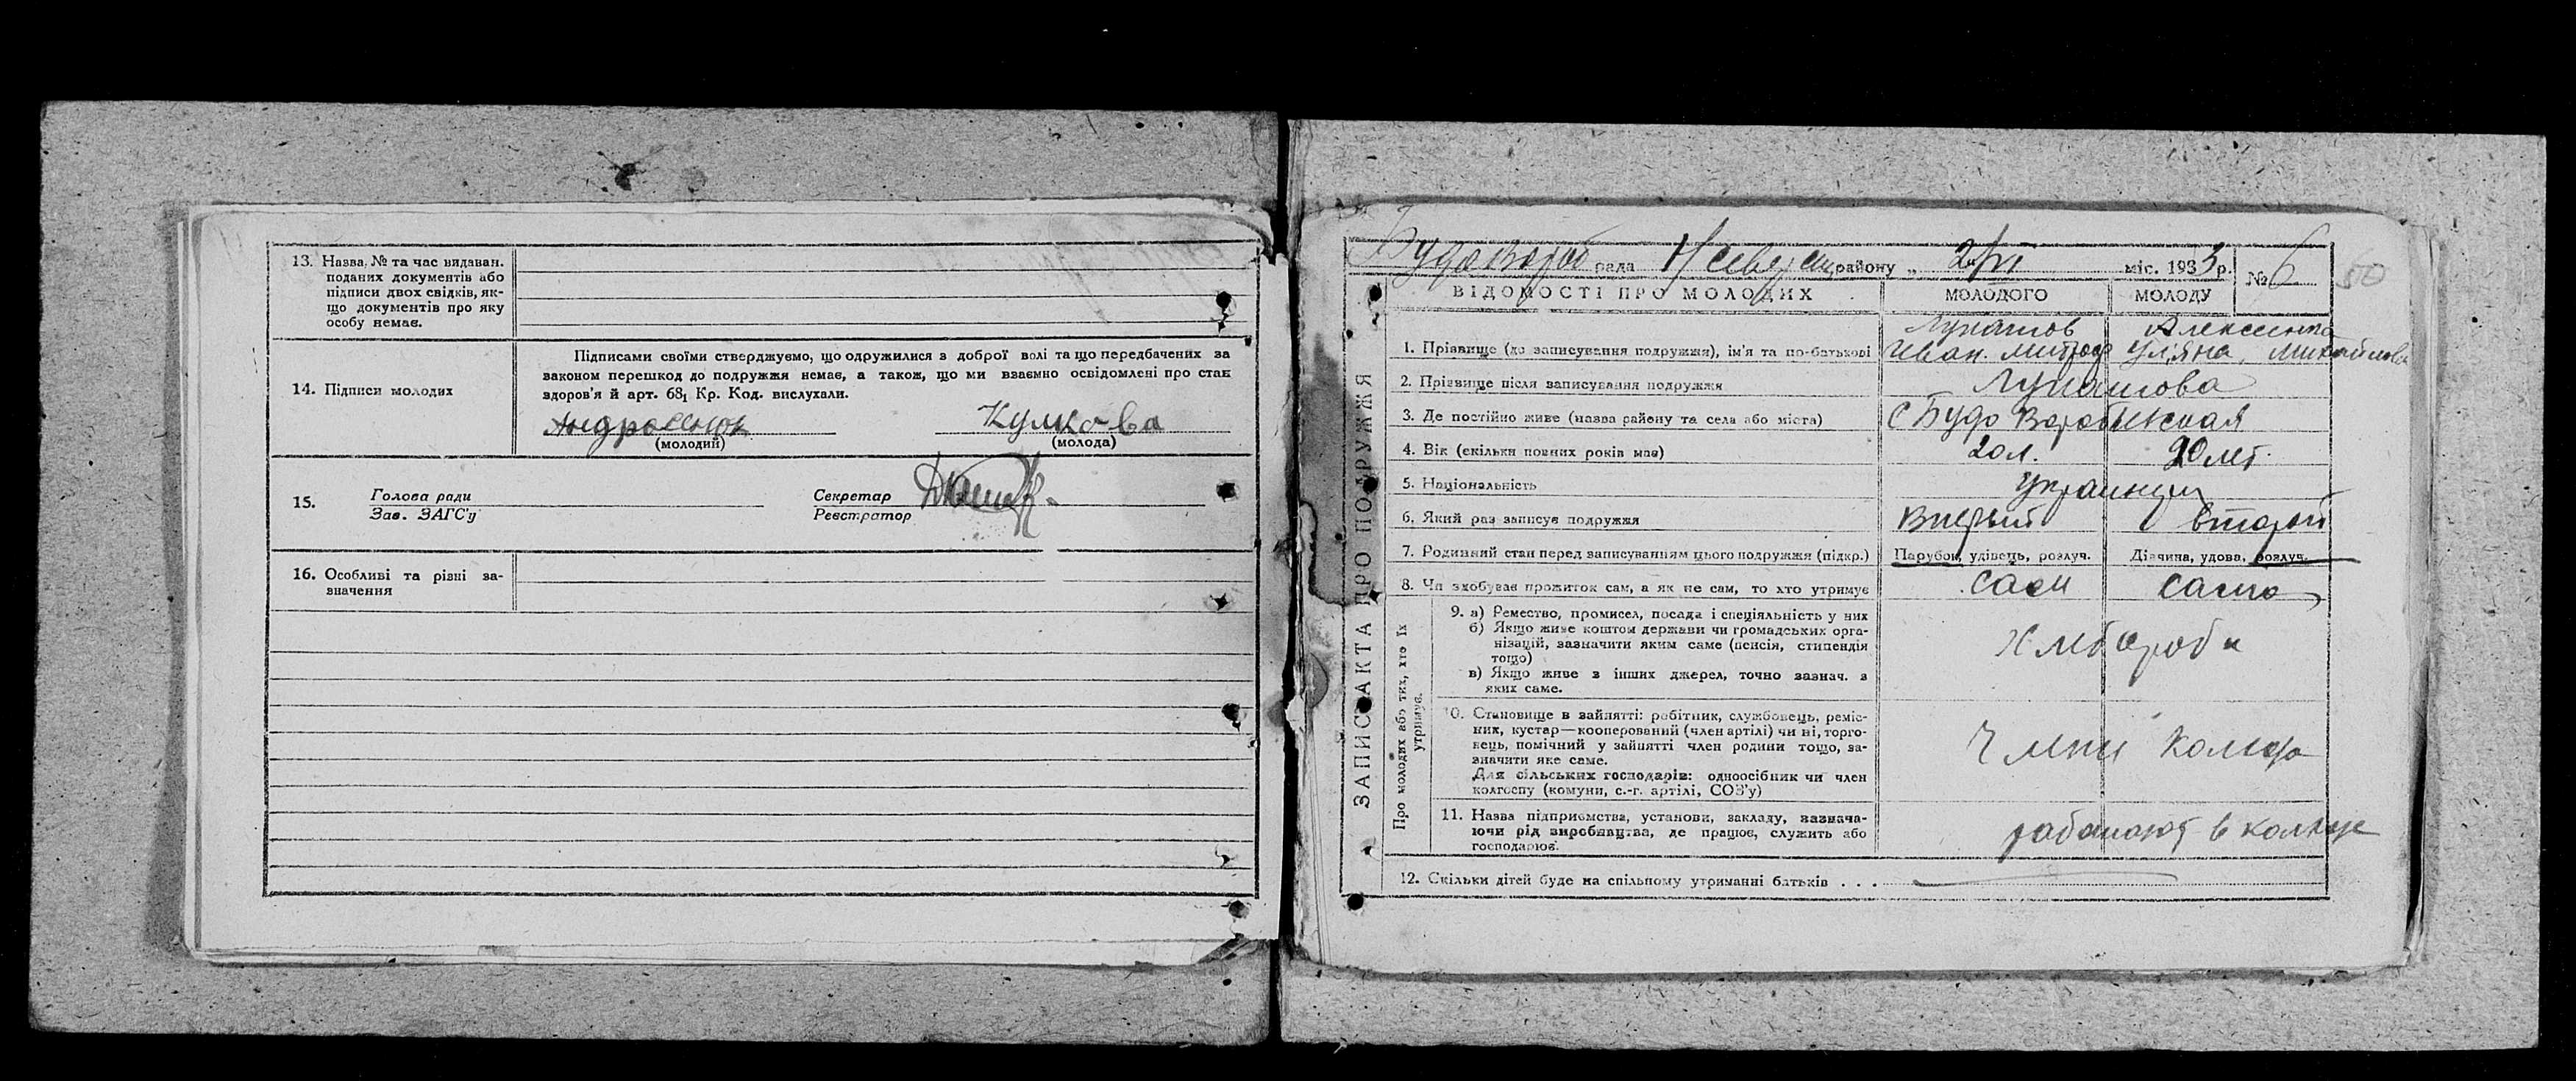 13. Назва, № та час видаван.
поданих документів або
підписи двох свідків, як-
що документів про яку
особу немає.
14. Підписи молодих
Підписами своїми стверджуємо, що одружилися з доброї волі та що передбачених за
законом перешкод до подружжя немає, а також, що ми взаємно освідомлені про стан
здоров'я й арт. 68₁ Кр. Код. вислухали.
Кулкова
(молодий) (молода)
15. Голова ради Секретар
Зав. ЗАГС'у Реєстратор
16. Особливі та різні за-
значення
рада району „ міс. 1933 р. № 6 50
ЗАПИС АКТА ПРО ПОДРУЖЖЯ
ВІДОМОСТІ ПРО МОЛОДИХ МОЛОДОГО МОЛОДУ
1. Прізвище (до записування подружжя), ім'я та по-батькові Иван
2. Прізвище після записування подружжя
3. Де постійно живе (назва району та села або міста) С Будо
4. Вік (скільки повних років має) 20 л. 20 лет.
5. Національність
6. Який раз записує подружжя второй
7. Родинний стан перед записуванням цього подружжя (підкр.) Парубок, удівець, розлуч. Дівчина, удова, розлуч.
8. Чи здобуває прожиток сам, а як не сам, то хто утримує сам сама
Про молодих або тих, хто їх
утримує.
9. а) Ремество, промисел, посада і спеціяльність у них
б) Якщо живе коштом держави чи громадських орга-
нізацій, зазначити яким саме (пенсія, стипендія
тощо)
в) Якщо живе з інших джерел, точно зазнач. з
яких саме.
10. Становище в зайнятті: робітник, службовець, реміс-
ник, кустар—кооперований (член артілі) чи ні, торго-
вець, помічний у зайнятті член родини тощо, за-
значити яке саме.
Для сільських господарів: одноосібник чи член
колгоспу (комуни, с.-г. артілі, СОЗ'у)
11. Назва підприємства, установи, закладу, зазнача-
ючи рід виробництва, де працює, служить або
господарює.
работают в
12. Скільки дітей буде на спільному утриманні батьків . . .